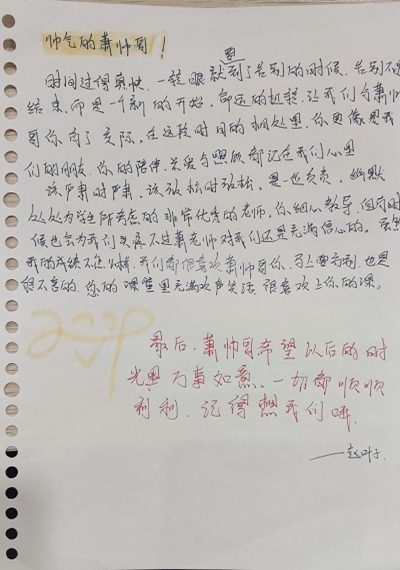 帅气的萧帅哥！
时间过得真快，一转眼就到了告别的时候，告别不是
结束，而是一个新的开始，命运的机转，让我们与萧帅
哥你有了交际，在这段时间的相处里，你更像是我
们的朋友，你的陪伴，关爱与照顾都记在我们心里
该严肃时严肃，该放松时放松，是一位负责，幽默
处处为学生所考虑的非常优秀的老师，你细心教导，但有时
候也会为我们头疼，不过萧老师对我们还是充满信心的。虽然
我的成绩不怎么样，我们都很喜欢萧帅哥你，马上要离别，也是
很不舍的，您的课堂里充满欢声笑语，很喜欢上你的课。
最后，萧帅哥希望以后的时
光里万事如意、一切都顺顺
利利，记得想我们哦
——赵叶子